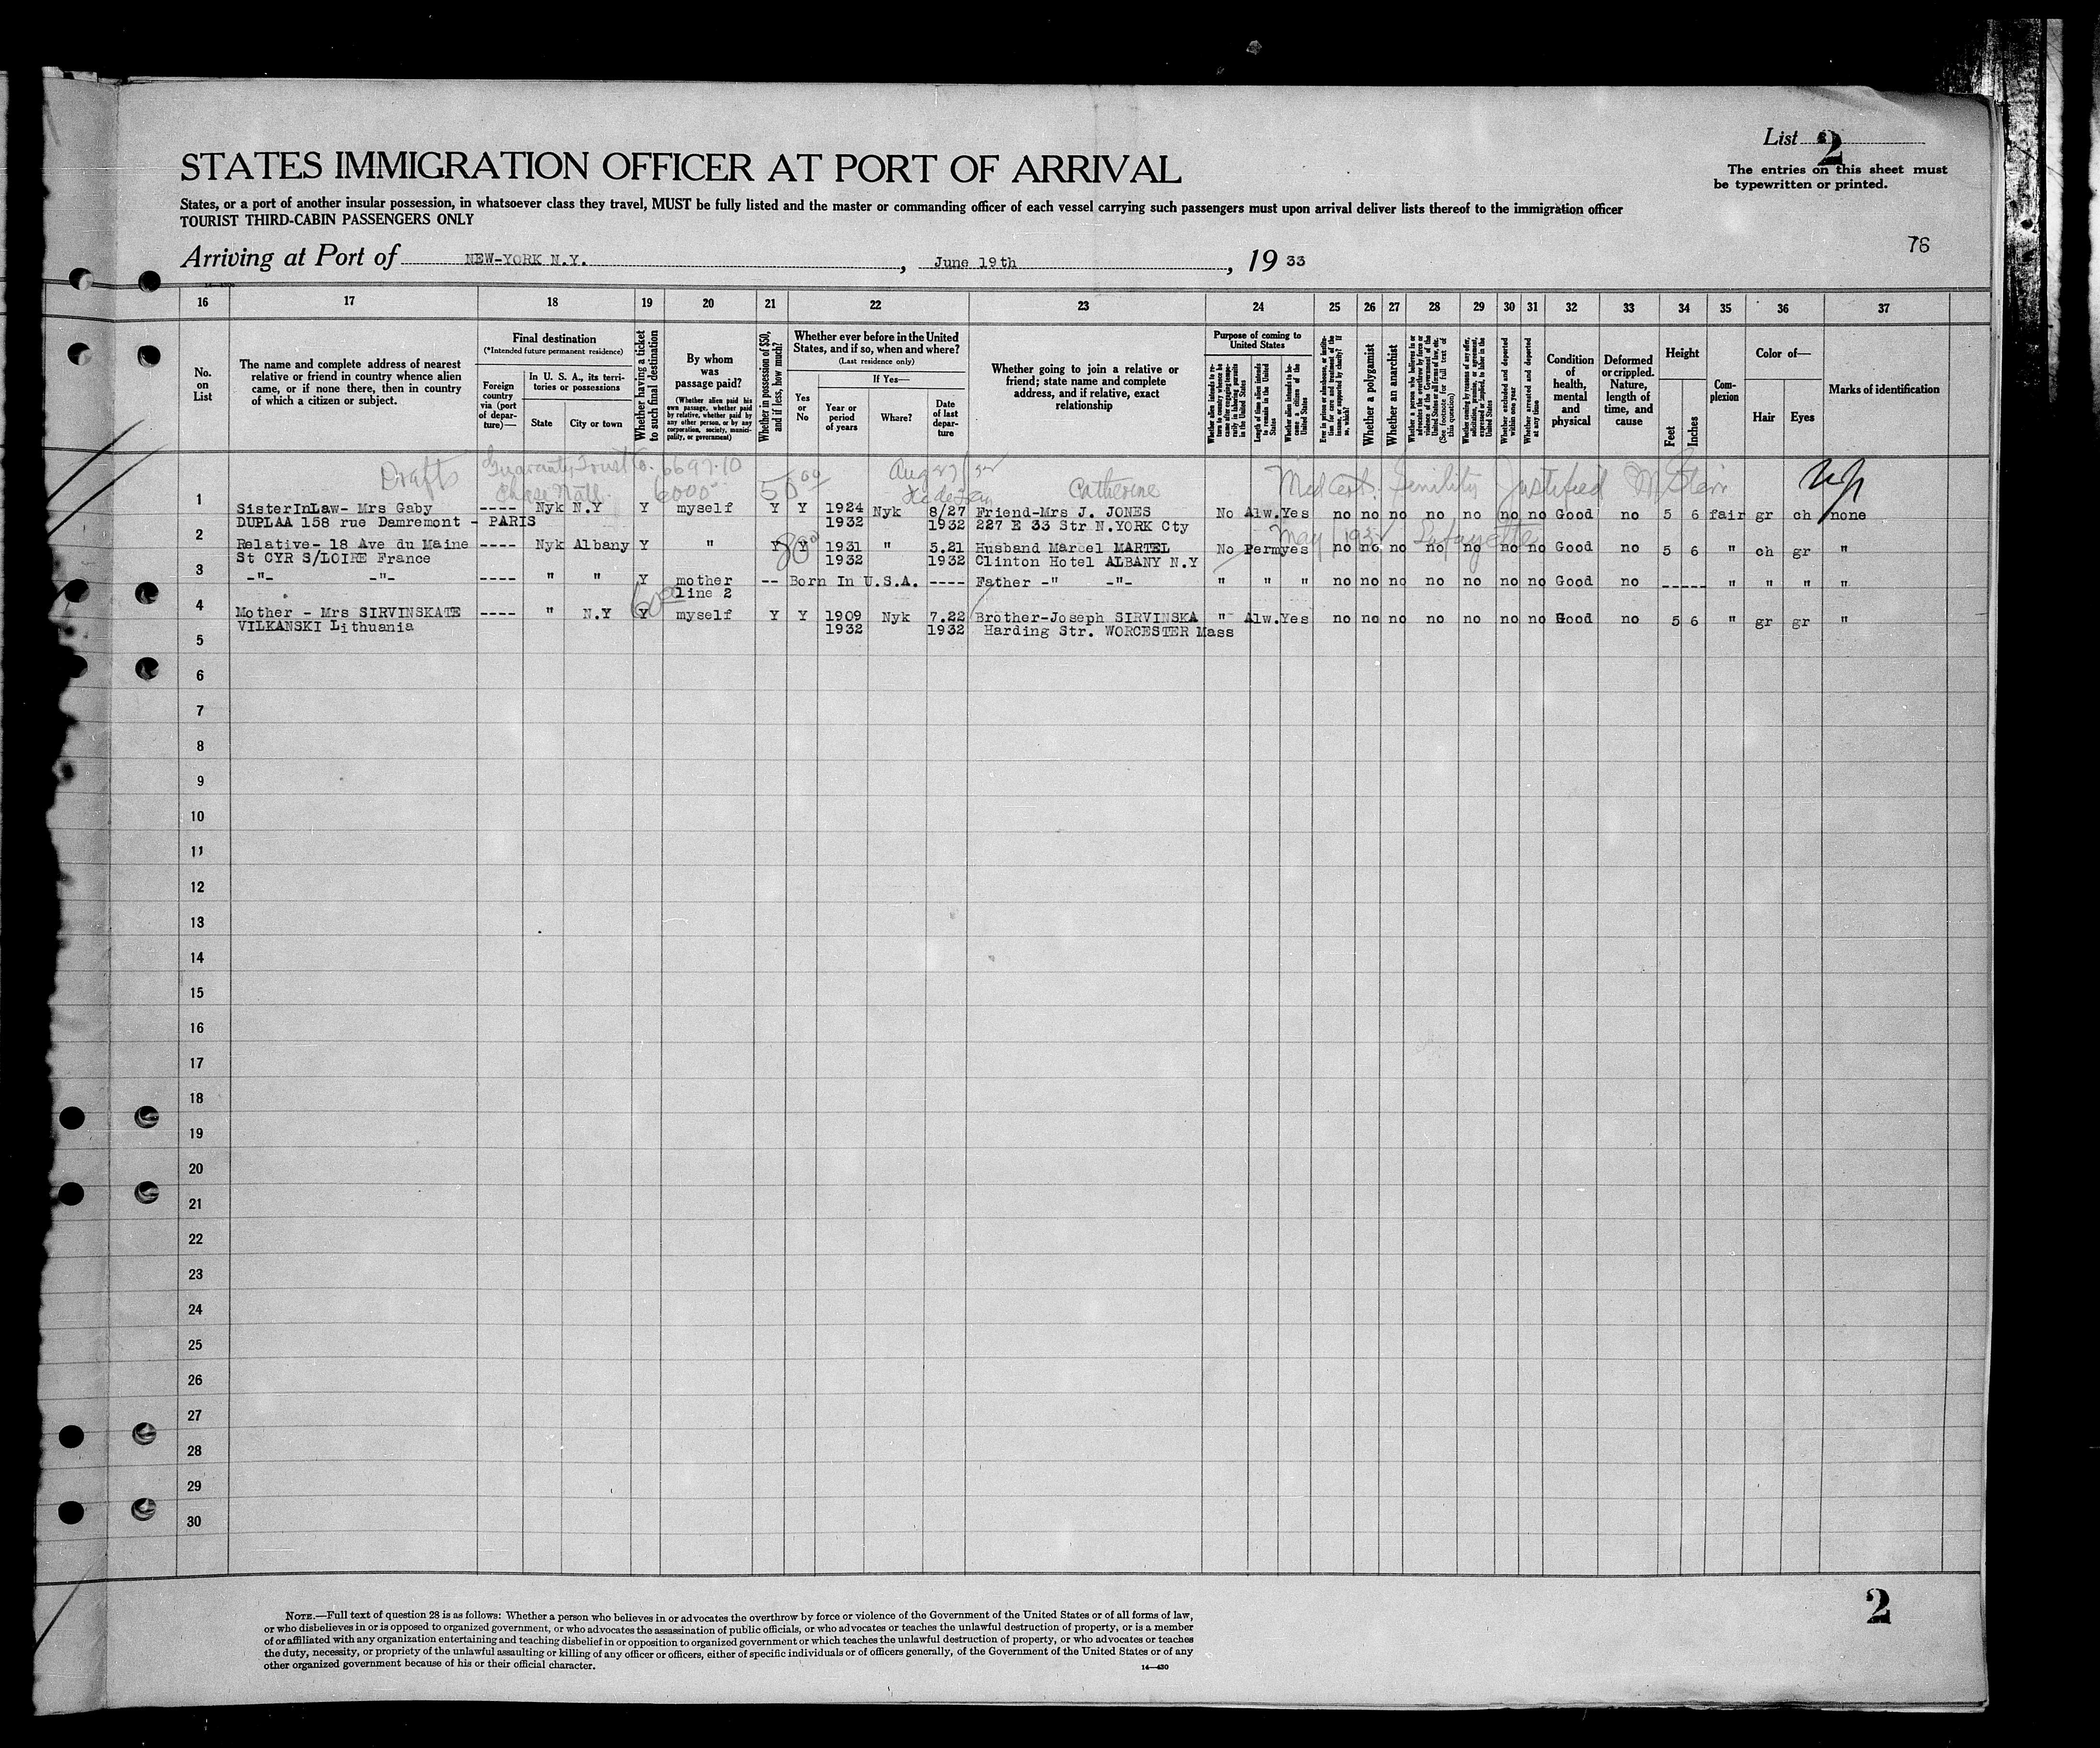 List 2
The entries on this sheet must
be typewritten or printed.
STATES IMMIGRATION OFFICER AT PORT OF ARRIVAL
States, or a port of another insular possession, in whatsoever class they travel, MUST be fully listed and the master or commanding officer of each vessel carrying such passengers must upon arrival deliver lists thereof to the immigration officer
TOURIST THIRD-CABIN PASSENGERS ONLY
76
Arriving at Port of NEW-YORK N.Y. , June 19th , 19 33
16 17 18 19 20 21 22 23 24 25 26 27 28 29 30 31 32 33 34 35 36 37
No. on List
The name and complete address of nearest
relative or friend in country whence alien
came, or if none there, then in country
of which a citizen or subject.
Final destination
(*Intended future permanent residence)
Foreign country via (port of departure)—
In U. S. A., its territories or possessions
State
City or town
Whether having a ticket to such final destination
By whom was passage paid?
(Whether alien paid his own passage, whether paid by relative, whether paid by any other person, or by any corporation, society, municipality, or government)
Whether in possession of $50, and if less, how much?
Whether ever before in the United States, and if so, when and where?
(Last residence only)
Yes or No
If Yes—
Year or period of years
Where?
Date of last departure
Whether going to join a relative or
friend; state name and complete
address, and if relative, exact
relationship
Purpose of coming to United States
Whether alien intends to return to country whence he came after engaging temporarily in laboring pursuits in the United States
Length of time alien intends to remain in the United States
Whether alien intends to become a citizen of the United States
Ever in prison or almshouse, or institution for care and treatment of the insane, or supported by charity? If so, which?
Whether a polygamist
Whether an anarchist
Whether a person who believes in or advocates the overthrow by force or violence of the Government of the United States or all forms of law, etc. (See footnote for full text of this question)
Whether coming by reason of any offer, solicitation, promise, or agreement, expressed or implied, to labor in the United States
Whether excluded and deported within one year
Whether arrested and deported at any time
Condition of health, mental and physical
Deformed or crippled. Nature, length of time, and cause
Height
Feet
Inches
Complexion
Color of—
Hair
Eyes
Marks of identification
Drafts Guaranty Trust Co. 6697.10 50 00 Aug 27/32 Catherine Med cert. Senility Justified
Chase Natl. 6000
1 SisterInLaw- Mrs Gaby ---- Nyk N.Y Y myself Y Y 1924 Nyk 8/27 Friend-Mrs J. JONES No Alw. Yes no no no no no no no Good no 5 6 fair gr ch none
DUPLAA 158 rue Damremont - PARIS 1932 1932 227 E 33 Str N.YORK Cty
May 1932 Lafayette
2 Relative- 18 Ave du Maine ---- Nyk Albany Y " Y Y 1931 " 5.21 Husband Marcel MARTEL No Perm yes no no no no no no no Good no 5 6 " ch gr "
St CYR S/LOIRE France 1932 1932 Clinton Hotel ALBANY N.Y
3 -"- -"- ---- " " Y mother -- Born In U.S.A. ---- Father -" -"- " " " no no no no no no no Good no ----- " " " "
line 2
4 Mother - Mrs SIRVINSKATE ---- " N.Y Y myself Y Y 1909 Nyk 7.22 Brother-Joseph SIRVINSKA " Alw. Yes no no no no no no no Good no 5 6 " gr gr "
VILKANSKI Lithuania 1932 1932 Harding Str. WORCESTER Mass
5
6
7
8
9
10
11
12
13
14
15
16
17
18
19
20
21
22
23
24
25
26
27
28
29
30
NOTE.—Full text of question 28 is as follows: Whether a person who believes in or advocates the overthrow by force or violence of the Government of the United States or of all forms of law,
or who disbelieves in or is opposed to organized government, or who advocates the assassination of public officials, or who advocates or teaches the unlawful destruction of property, or is a member
of or affiliated with any organization entertaining and teaching disbelief in or opposition to organized government or which teaches the unlawful destruction of property, or who advocates or teaches
the duty, necessity, or propriety of the unlawful assaulting or killing of any officer or officers, either of specific individuals or of officers generally, of the Government of the United States or of any
other organized government because of his or their official character.
14—430
2